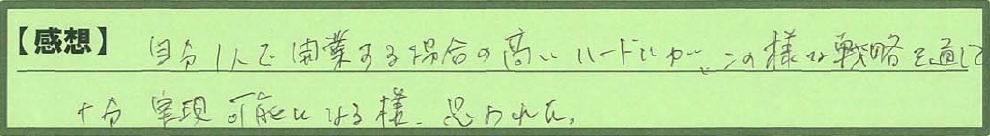 【感想】 自分1人で開業する場合の高いハードルが、この様な戦略を通して
十分実現可能になる様、思われた。